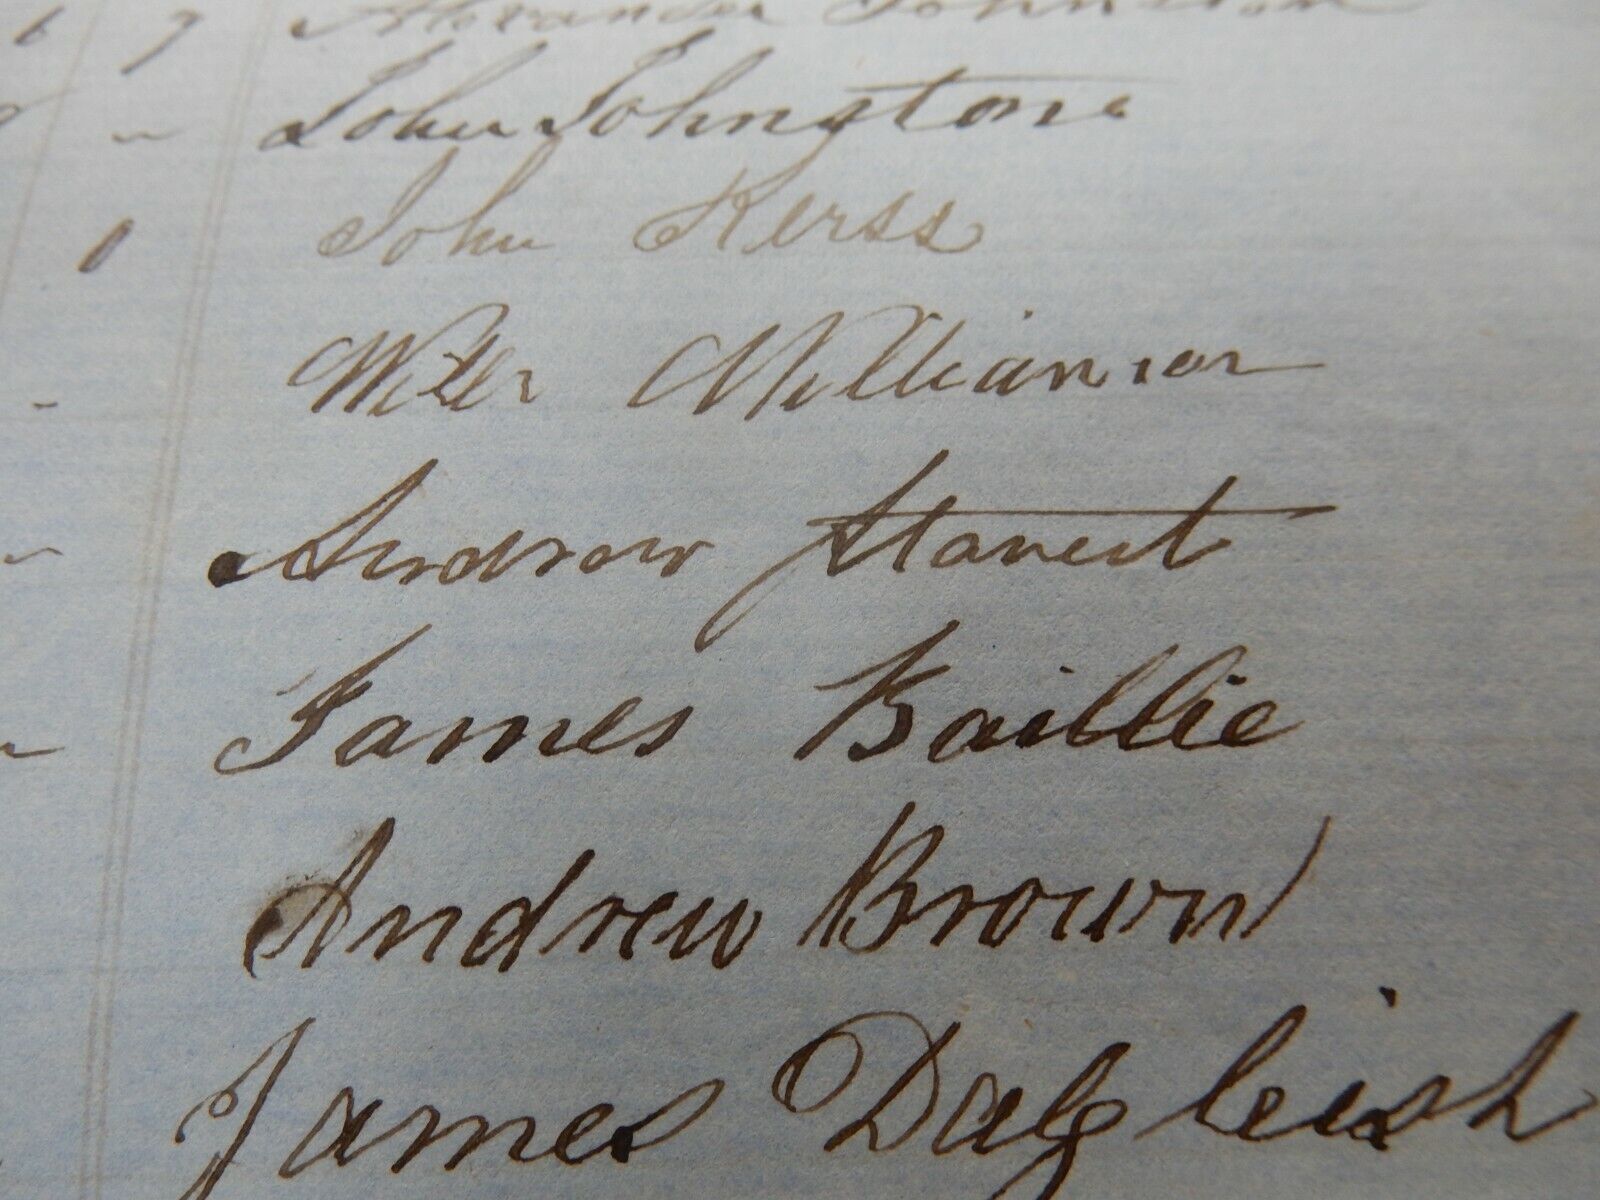 6 7 Alexander Johnston
John Johngtone
0 John Kerss
Williamson
Andrew
James Baillie
Andrew Brown
James Dalgleish